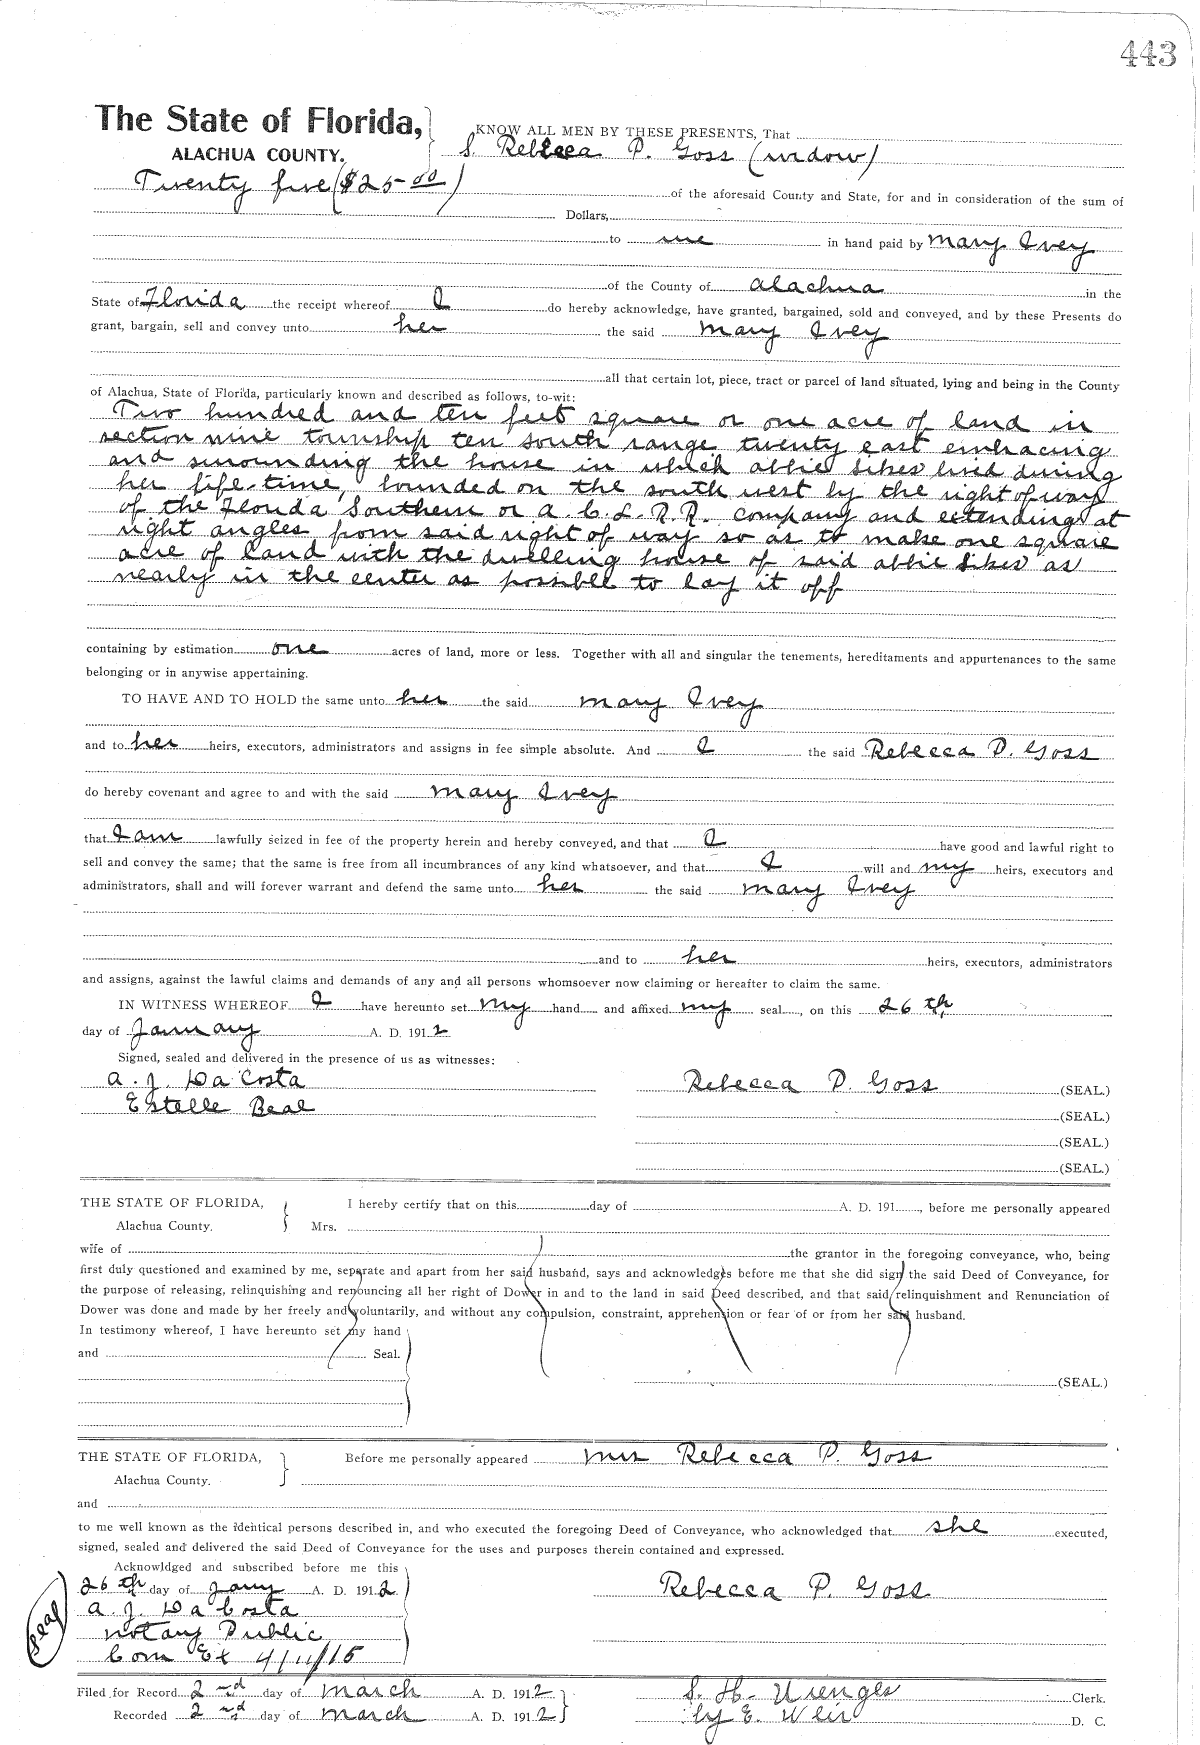 443
The State of Florida,
ALACHUA COUNTY.
KNOW ALL MEN BY THESE PRESENTS, That
I. Rebecca P. Goss (widow)
Twenty five ($25.00)
of the aforesaid County and State, for and in consideration of the sum of
Dollars,
to me in hand paid by Mary Ivey
of the County of Alachua in the
State of Florida the receipt whereof I do hereby acknowledge, have granted, bargained, sold and conveyed, and by these Presents do
grant, bargain, sell and convey unto her the said Mary Ivey
all that certain lot, piece, tract or parcel of land situated, lying and being in the County
of Alachua, State of Florida, particularly known and described as follows, to-wit:
Two hundred and ten feet square or one acre of land in
section nine township ten south range twenty east embracing
and surounding the house in which abbie Sikes lived during
her life-time, bounded on the south west by the right of way
of the Florida Southern or A. C. L. R. R. company and extending at
right angles from said right of way so as to make one square
acre of land with the dwelling house of said abbie Sikes as
nearly in the center as possible to lay it off
containing by estimation one acres of land, more or less. Together with all and singular the tenements, hereditaments and appurtenances to the same
belonging or in anywise appertaining.
TO HAVE AND TO HOLD the same unto her the said Mary Ivey
and to her heirs, executors, administrators and assigns in fee simple absolute. And I the said Rebecca P. Goss
do hereby covenant and agree to and with the said Mary Ivey
that I am lawfully seized in fee of the property herein and hereby conveyed, and that I have good and lawful right to
sell and convey the same; that the same is free from all incumbrances of any kind whatsoever, and that I will and my heirs, executors and
administrators, shall and will forever warrant and defend the same unto her the said Mary Ivey
and to her heirs, executors, administrators
and assigns, against the lawful claims and demands of any and all persons whomsoever now claiming or hereafter to claim the same.
IN WITNESS WHEREOF I have hereunto set my hand and affixed my seal, on this 26th
day of January A. D. 1912
Signed, sealed and delivered in the presence of us as witnesses:
A. J. Da Costa Rebecca P. Goss (SEAL.)
Estelle Beal (SEAL.)
(SEAL.)
(SEAL.)
THE STATE OF FLORIDA, I hereby certify that on this day of A. D. 191, before me personally appeared
Alachua County. Mrs.
wife of the grantor in the foregoing conveyance, who, being
first duly questioned and examined by me, separate and apart from her said husband, says and acknowledges before me that she did sign the said Deed of Conveyance, for
the purpose of releasing, relinquishing and renouncing all her right of Dower in and to the land in said Deed described, and that said relinquishment and Renunciation of
Dower was done and made by her freely and voluntarily, and without any compulsion, constraint, apprehension or fear of or from her said husband.
In testimony whereof, I have hereunto set my hand
and Seal.
(SEAL.)
THE STATE OF FLORIDA, Before me personally appeared Mrs Rebecca P. Goss
Alachua County.
and
to me well known as the identical persons described in, and who executed the foregoing Deed of Conveyance, who acknowledged that she executed,
signed, sealed and delivered the said Deed of Conveyance for the uses and purposes therein contained and expressed.
Acknowldged and subscribed before me this
26th day of Jany A. D. 1912 Rebecca P. Goss
A. J. Da Costa
Seal
Notary Public
Com Ex 4/11/15
Filed for Record 2nd day of March A. D. 1912 S. H. Wienges Clerk.
Recorded 2nd day of March A. D. 1912 by E. Weir D. C.